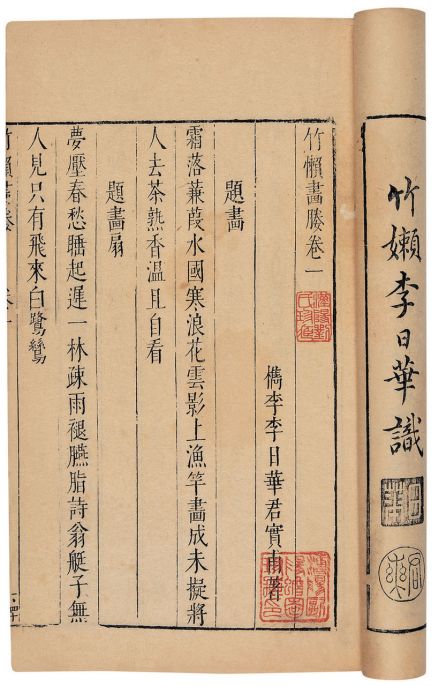 竹嬾李日華識
竹懶畫媵卷一
檇李李日華君實甫著
題畫
霜落蒹葭水國寒浪花雲影上漁竿畫成未擬將
人去茶熟香溫且自看
題畫扇
夢壓春愁睡起遲一林疎雨褪臙脂詩翁艇子無
人見只有飛來白鷺鷥